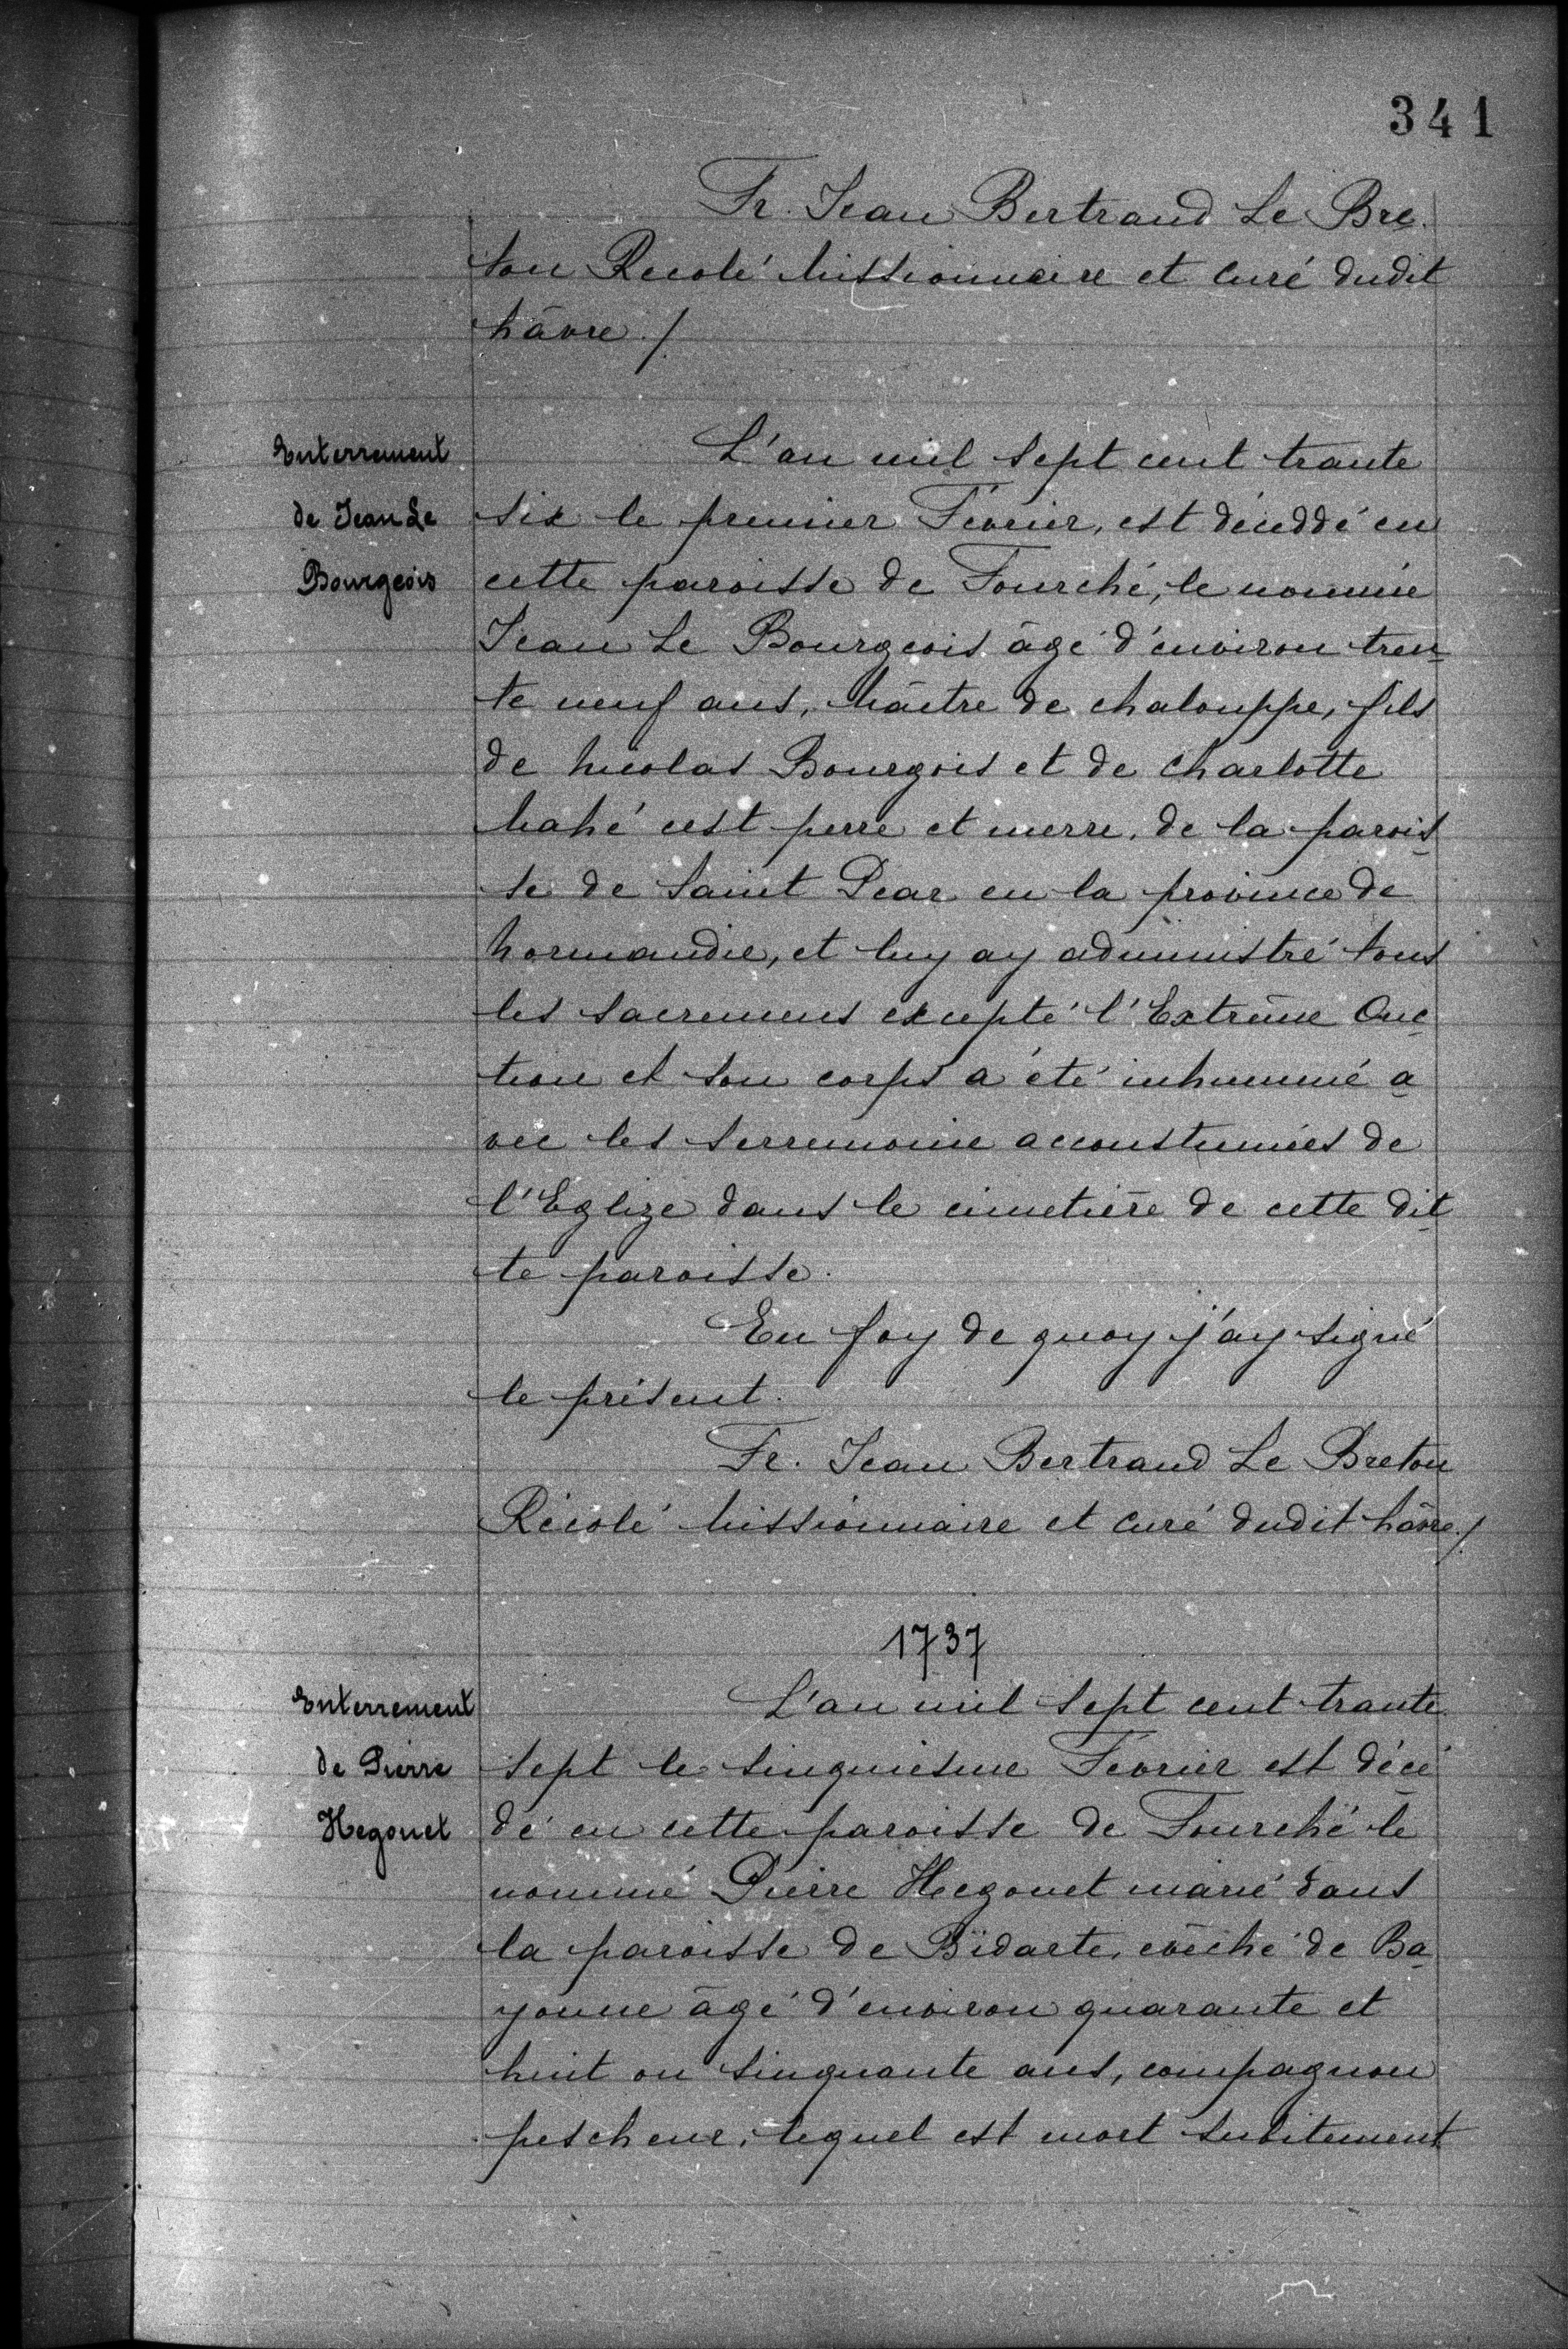 341
Fr. Jean Bertrand Le Bre
ton Recolé Missionnaire et Curé dudit
hâvre ./
Enterrement
de Jean Le
Bourgeois
L'an mil sept cent trante
six le premier Février, est déceddé en
cette paroisse de Fourché, le nommé
Jean Le Bourgeois âgé d'environ tren-
te neuf ans, Maître de chalouppe, fils
de Nicolas Bourgois et de Charlotte
Mahé cest perre et merre, de la parois-
se de Saint Pear en la province de
Normandie, et luy ay administré tous
les Sacremens excepté l'Extrême Onc-
tion et son corps a été inhummé a-
vec les serremonie accoustumées de
l'Eglize dans le cimetière de cette dit-
te paroisse.
En foy de quoy j'ay signé
le présent.
Fr. Jean Bertrand Le Breton
Récolé Missionnaire et Curé dudit hâvre./
1737
Enterrement
de Pierre
Hegonet
L'an mil sept cent trante
sept le sinquiesme Février est décé
dé en cette paroisse de Fourché le
nommé Pierre Hegonet marié dans
la paroisse de Bidarte, evêché de Ba-
yonne âgé d'environ quarante et
huit ou sinquante ans, compagnon
pescheur, lequel est mort subitement